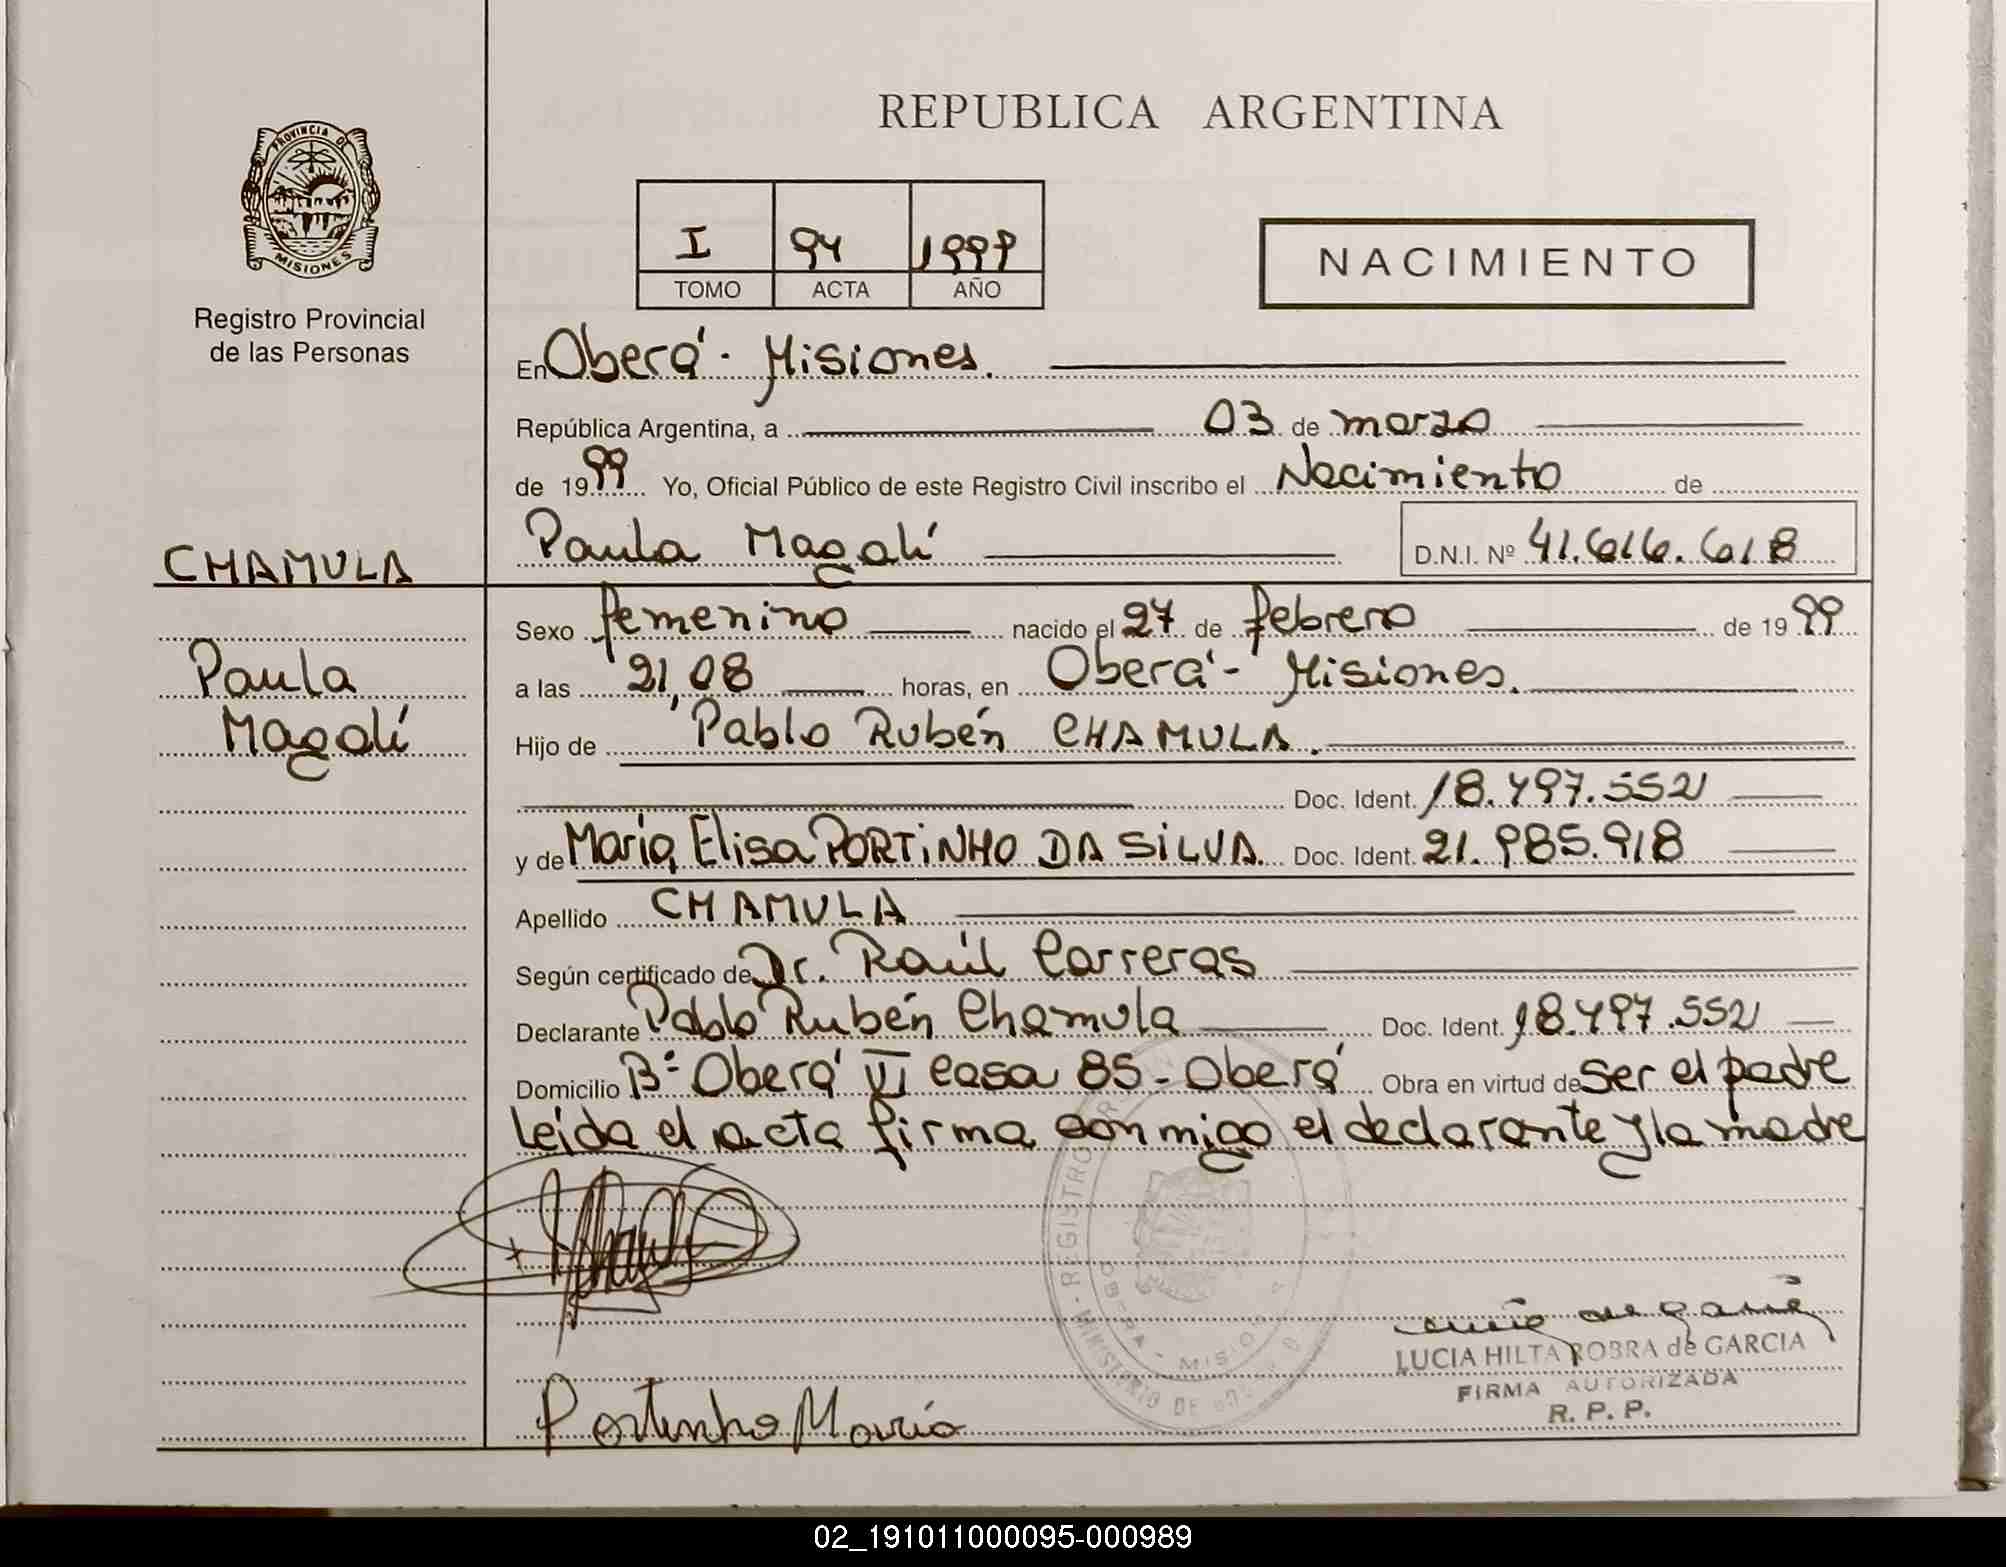 REPUBLICA ARGENTINA
PROVINCIA DE
MISIONES
Registro Provincial
de las Personas
I 94 1999
TOMO ACTA AÑO
NACIMIENTO
En Oberá - Misiones.
República Argentina, a 03 de marzo
de 1999 Yo, Oficial Público de este Registro Civil inscribo el Nacimiento de
CHAMULA
Paula Magalí
D.N.I. Nº 41.616.618
Paula
Magalí
Sexo femenino nacido el 27 de febrero de 1999
a las 21,08 horas, en Oberá - Misiones.
Hijo de Pablo Rubén CHAMULA.
Doc. Ident. 18.497.552
y de María Elisa PORTiNHO DA SiLVA. Doc. Ident. 21.985.918
Apellido CHAMULA
Según certificado de Dr. Raúl Carreras
Declarante Pablo Rubén Chamula Doc. Ident. 18.497.552
Domicilio Bº Oberá VI casa 85 - Oberá Obra en virtud de ser el padre
leída el acta firma conmigo el declarante y la madre
REGISTRO
MINISTERIO DE
LUCIA HILTA ROBRA de GARCIA
FIRMA AUTORIZADA
R. P. P.
Portinho María
02_191011000095-000989